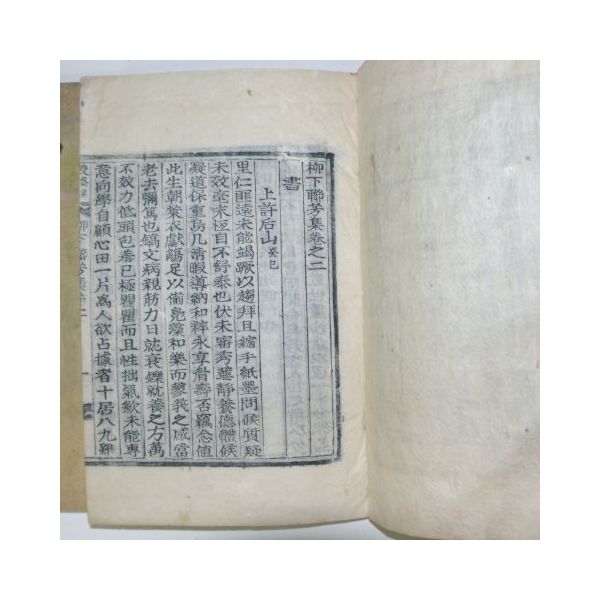 柳下聯芳集卷之二
書
上許后山 癸巳
里仁匪遠未能竭蹶以趨拜且縮手紙墨問候質疑
未效毫末恒自不舒泰也伏未審秀葽靜養德體候
凝道保重爲几清暇導納和粹永享耆壽否窺念値
此生朝萊衣獻觴足以備兕籩和樂而蓼莪之感當
老去彌篤也鎬文病親筋力日就衰鑠就養之方萬
不效力低頭包羞已極瞿瞿而且性拙氣歉未能專
意向學自顧心田一片爲人欲占據者十居八九雖
柳下聯芳集卷二